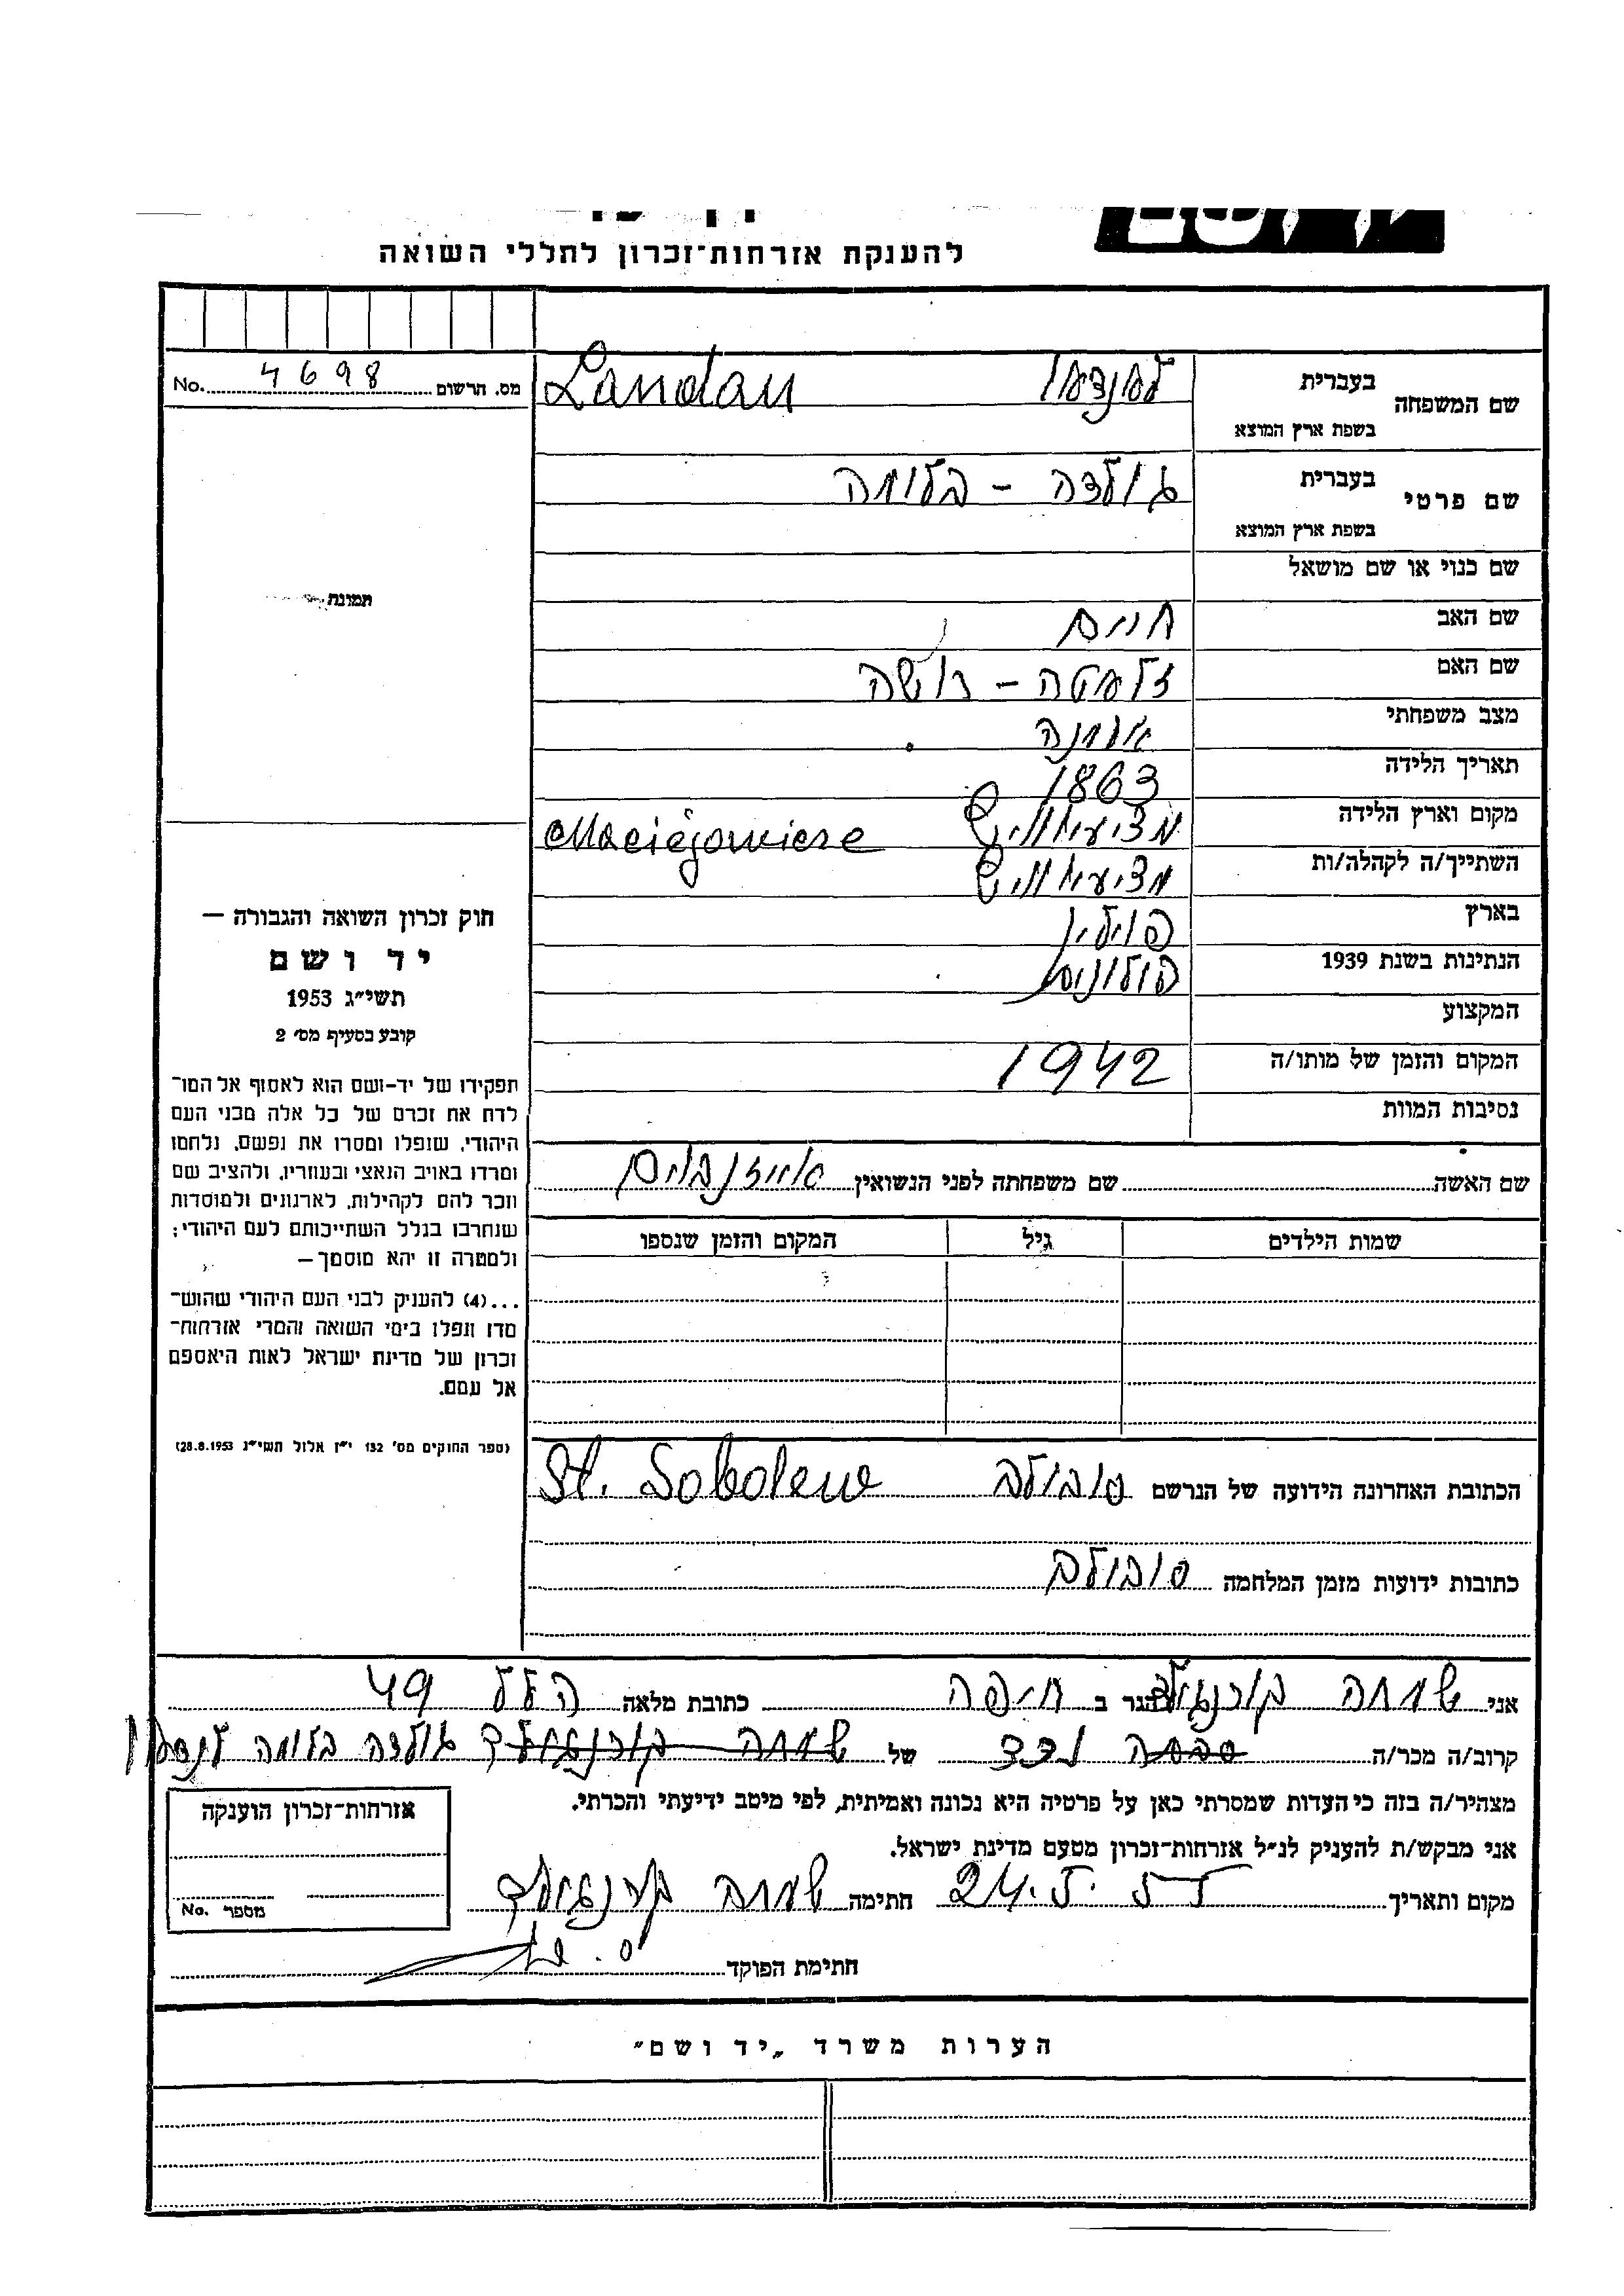 להענקת אזרחות־זכרון לחללי השואה
מס. הרשום 4698 No.
שם המשפחה
בעברית לאנדאו Landau
בשפת ארץ המוצא
שם פרטי
בעברית גולדה - בלומה
בשפת ארץ המוצא
שם כנוי או שם מושאל
שם האב חיים
שם האם זלאטה - רושה
מצב משפחתי אלמנה
תאריך הלידה 1863
מקום וארץ הלידה Maciejowice
השתייך/ה לקהלה/ות
בארץ פוילין
הנתינות בשנת 1939 פולונית
המקצוע
המקום והזמן של מותו/ה 1942
נסיבות המוות
שם האשה שם משפחתה לפני הנשואין אייזנבוים
שמות הילדים גיל המקום והזמן שנספו
הכתובת האחרונה הידועה של הנרשם סובולב St. Sobolew
כתובות ידועות מזמן המלחמה סובולב
תמונת
חוק זכרון השואה והגבורה —
יד ושם
תשי״ג 1953
קובע בסעיף מס׳ 2
תפקידו של יד-ושם הוא לאסוף אל המו־
לדת את זכרם של כל אלה מבני העם
היהודי, שנפלו ומסרו את נפשם, נלחמו
ומרדו באויב הנאצי ובעוזריו, ולהציב שם
וזכר להם לקהילות, לארגונים ולמוסדות
שנחרבו בגלל השתייכותם לעם היהודי;
ולמטרה זו יהא מוסמך —
...(4) להעניק לבני העם היהודי שהוש־
מדו ונפלו בימי השואה והמרי אזרחות־
זכרון של מדינת ישראל לאות היאספם
אל עמם.
(ספר החוקים מס׳ 132 י״ז אלול תשי״ג 28.8.1953)
אני שמחה קורנגולד הגר ב חיפה כתובת מלאה הלל 49
קרוב/ה מכר/ה סבתה נכד של שמחה קורנגולד גולדה בלומה לנדאו
מצהיר/ה בזה כי העדות שמסרתי כאן על פרטיה היא נכונה ואמיתית, לפי מיטב ידיעתי והכרתי.
אני מבקש/ת להעניק לנ״ל אזרחות־זכרון מטעם מדינת ישראל.
מקום ותאריך חתימה שמחה קורנגולד
חתימת הפוקד
אזרחות־זכרון הוענקה
מספר No.
הערות משרד „יד ושם״